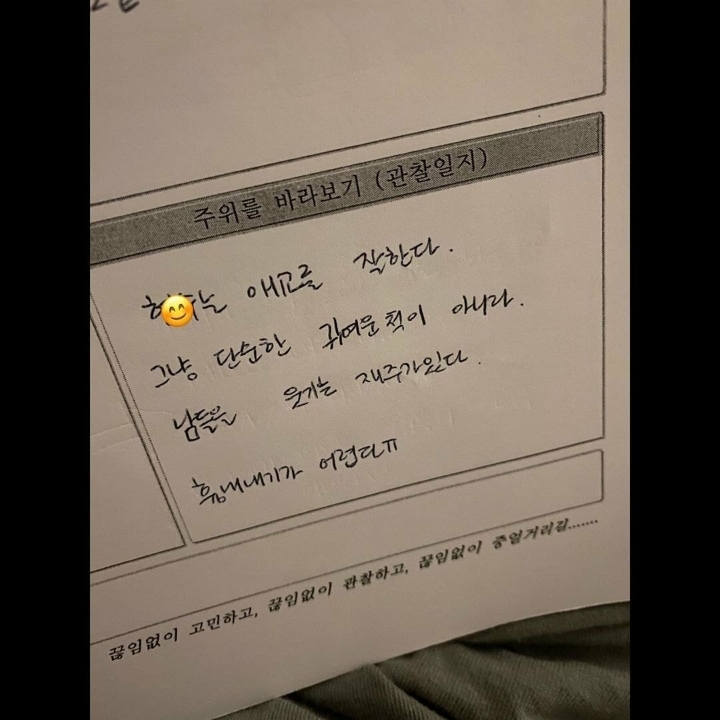 주위를 바라보기 (관찰일지)
애교를 잘한다.
그냥 단순한 귀여운척이 아니라.
남들을 웃기는 재주가있다.
흉내내기가 어렵다ㅠ
끊임없이 고민하고, 끊임없이 관찰하고, 끊임없이 중얼거리길.......